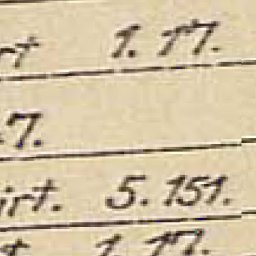 rt 1.17.
17.
irt. 5.151.
t 1.17.